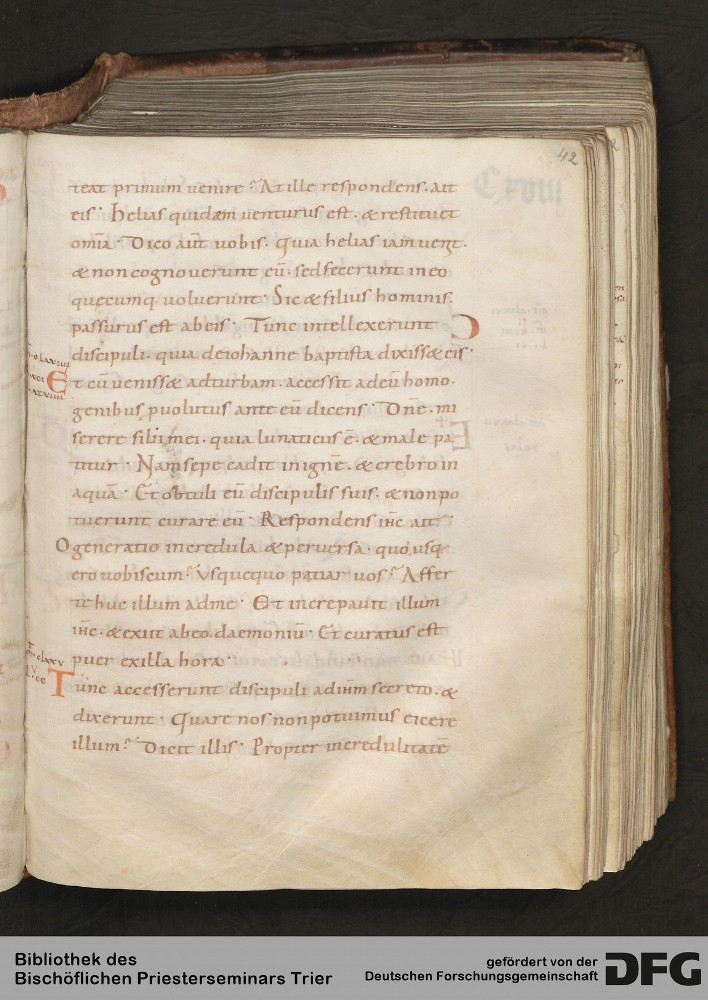 42
teat primum uenire? At ille respondens. ait
eis. Helias quidem uenturus est. & restituet
om̄ia. Dico aut̄ uobis. quia helias iam uenit.
& non cognouerunt eū. sed fecerunt in eo
quecumq. uoluerunt. Sic & filius hominis.
passurus est ab eis. Tunc intellexerunt
discipuli. quia de iohanne baptista dixiss& eis.
Et eūueniss& ad turbam. accessit ad eū homo.
genibus puolutus ante eū dicens. Dn̄e. mi
serere filii mei. quia lunaticus ē. & male pa
titur. Nam sepe cadit in ignē. & crebro in
aquā. Et obtuli eū discipulis suis. & non po
tuerunt curare eū. Respondens ih̄c ait.
O generatio incredula & peruersa. quo usq.
ero uobiscum? Usquequo patiar uos? Affer
te huc illum ad me. Et increpauit illum
ih̄c. & exiit ab eo daemoniū. Et curatus est
puer ex illa hora.
Tunc accesserunt discipuli ad ih̄m secreto. &
dixerunt. Quare nos non potuimus eicere
illum? Dicit illis. Propter incredulitatē
Bibliothek des
Bischöflichen Priesterseminars Trier
gefördert von der
Deutschen Forschungsgemeinschaft
DFG